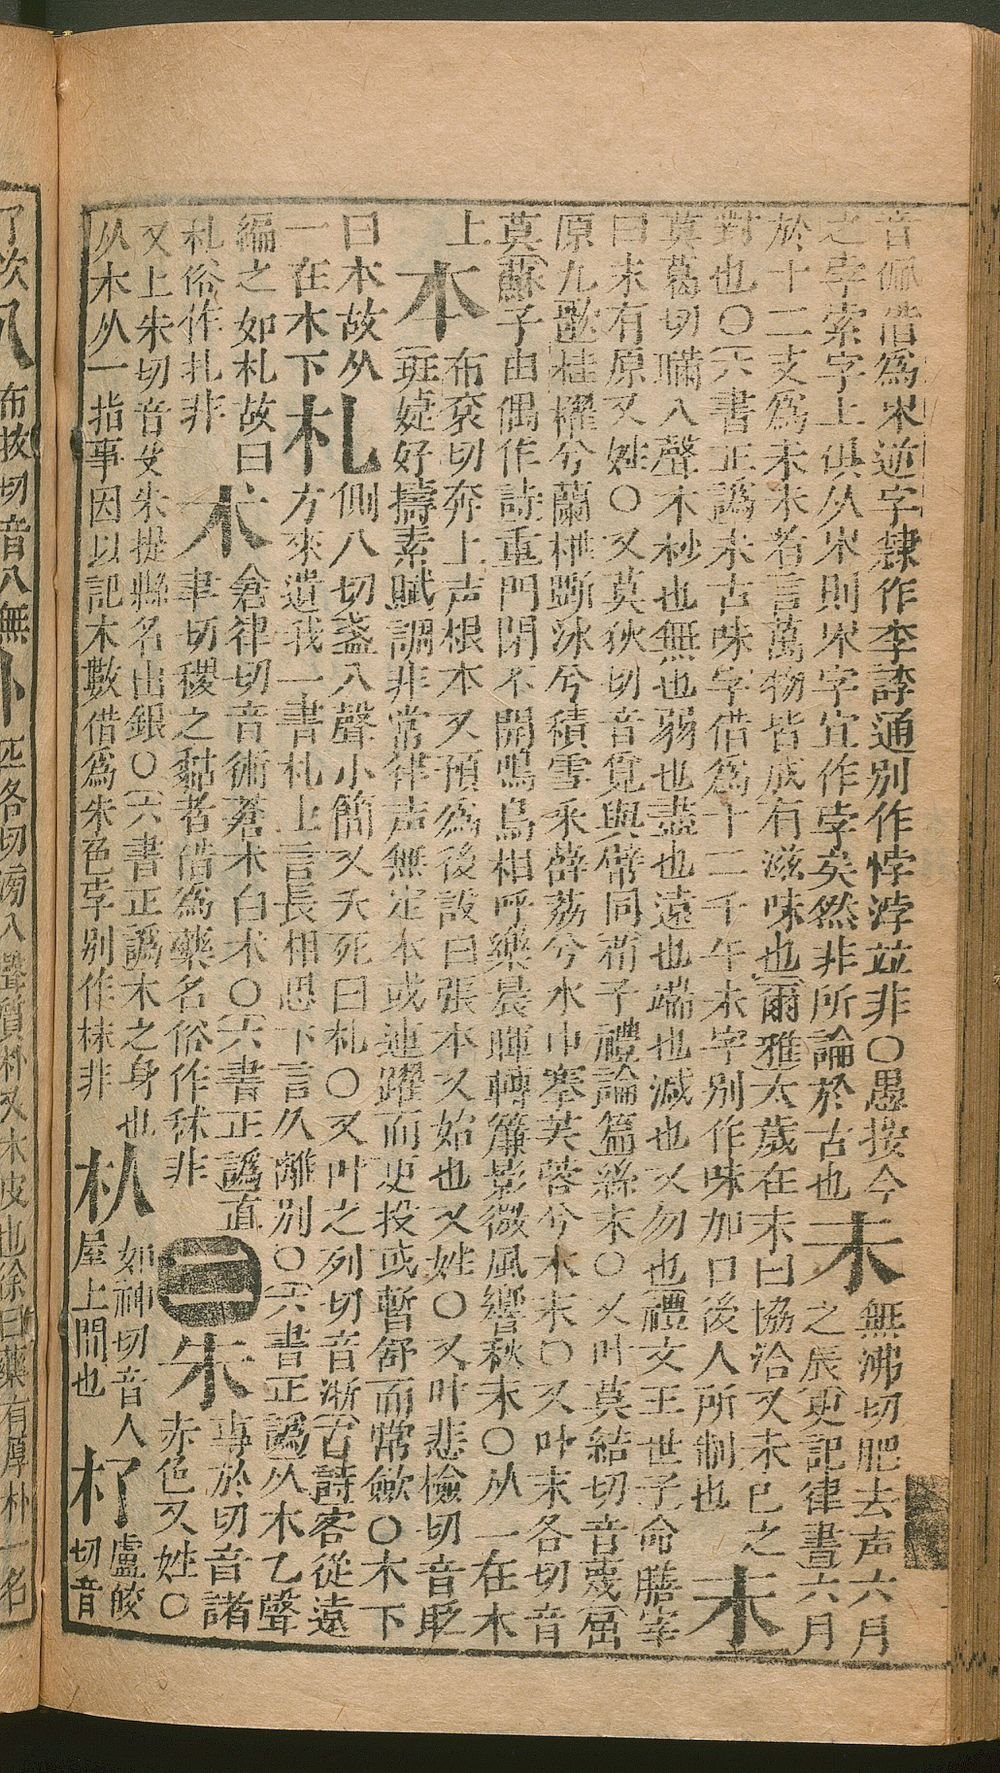 音佩借爲𣎵逆字隸作李誖通别作悖浡竝非〇愚按今
之孛索字上俱从𣎵則𣎵字宜作孛矣然非所論於古也
未
無沸切肥去声六月
之辰史記律書六月
於十二支爲未未者言萬物皆成有滋味也爾雅太歲在未曰協洽又未已之
對也〇六書正譌未古味字借爲十二千午未字别作味加口後人所制也
末
莫葛切瞒入聲木杪也無也弱也盡也遠也端也減也又勿也禮文王世子命膳宰
曰末有原又姓〇又莫狄切音覓與幦同荀子禮論篇絲末〇又叶莫結切音蔑屈
原九歌桂櫂兮蘭枻斲冰兮積雪采薜荔兮水中搴芙蓉兮木末〇又叶末各切音
莫蘇子由偶作詩重門閉不開鳴鳥相呼樂晨暉轉簾影微風響秋末〇从一在木
上
本
布袞切奔上声根本又預爲後設曰張本又始也又姓〇又叶悲檢切音貶
班婕妤擣素賦調非常律声無定本或連躍而更投或暫舒而常歛〇木下
曰本故从
一在木下
札
側八切盞入聲小簡又夭死曰札〇又叶之列切音淅古詩客從遠
方來遺我一書札上言長相思下言久離别〇六書正譌从木乙聲
編之如札故曰
札俗作扎非
朮
食律切音術蒼朮白朮〇六書正譌直
聿切稷之黏者借爲藥名俗作秫非
二
朱
專於切音諸
赤色又姓〇
又上朱切音殳朱提縣名出銀〇六書正譌木之身也
从木从一指事因以記木數借爲朱色孛别作株非
朲
如神切音人
屋上間也
朸
盧皎
切音